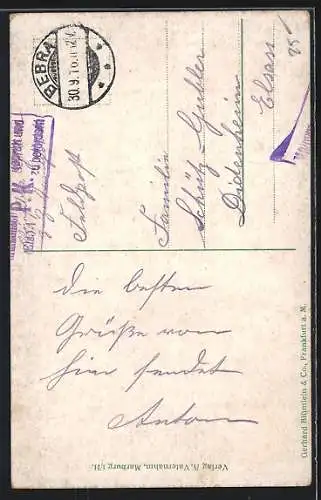 BEBRA
30.9.16
85
Feldpost
Familie
Schütz-Gubler
Didenheim
Elsas
die besten
Grüße von
hier sendet
Anton
Verlag A. Vaternahm, Marburg i/H.
Gerhard Blümlein & Co., Frankfurt a. M.